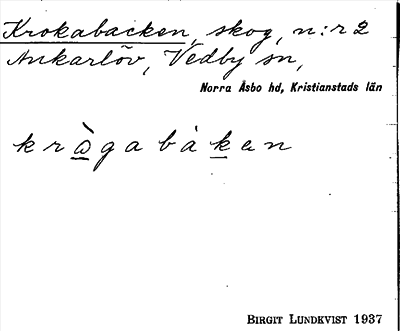 Krokabacken, skog, n:r 2
Ankarlöv, Vedby sn,
Norra Åsbo hd, Kristianstads län
k r ò̲ g a b á k̲ e n
BIRGIT LUNDKVIST 1937